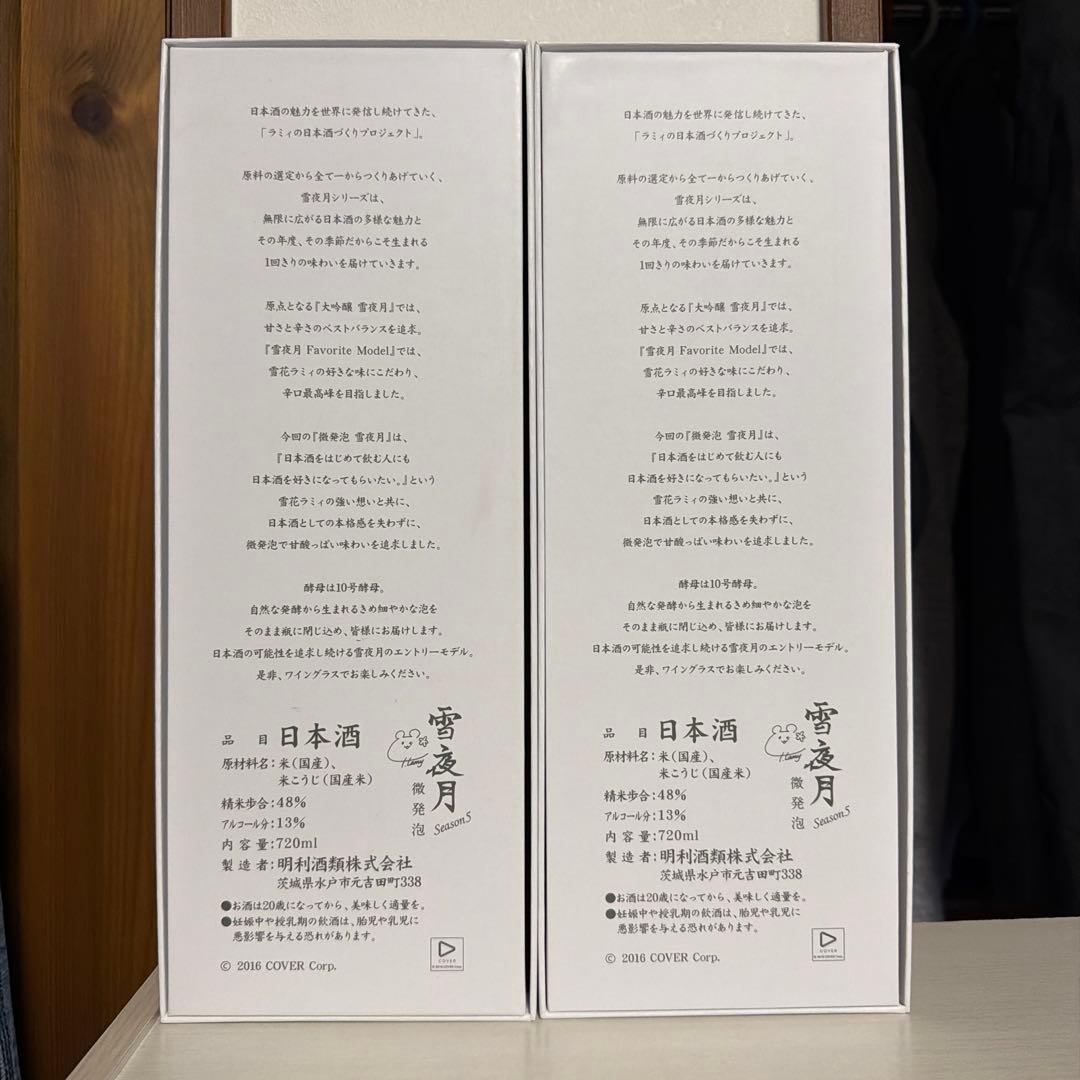 日本酒の魅力を世界に発信し続けてきた、
「ラミィの日本酒づくりプロジェクト」。
原料の選定から全て一からつくりあげていく、
雪夜月シリーズは、
無限に広がる日本酒の多様な魅力と
その年度、その季節だからこそ生まれる
1回きりの味わいを届けていきます。
原点となる『大吟醸 雪夜月』では、
甘さと辛さのベストバランスを追求。
『雪夜月 Favorite Model』では、
雪花ラミィの好きな味にこだわり、
辛口最高峰を目指しました。
今回の『微発泡 雪夜月』は、
『日本酒をはじめて飲む人にも
日本酒を好きになってもらいたい。』という
雪花ラミィの強い想いと共に、
日本酒としての本格感を失わずに、
微発泡で甘酸っぱい味わいを追求しました。
酵母は10号酵母。
自然な発酵から生まれるきめ細やかな泡を
そのまま瓶に閉じ込め、皆様にお届けします。
日本酒の可能性を追求し続ける雪夜月のエントリーモデル。
是非、ワイングラスでお楽しみください。
品 目 日本酒
原材料名：米（国産）、
米こうじ（国産米）
精米歩合：48%
アルコール分：13%
内 容 量：720ml
製 造 者：明利酒類株式会社
茨城県水戸市元吉田町338
雪夜月
微発泡
Season5
●お酒は20歳になってから、美味しく適量を。
●妊娠中や授乳期の飲酒は、胎児や乳児に
悪影響を与える恐れがあります。
© 2016 COVER Corp.
COVER
© 2016 COVER Corp.
日本酒の魅力を世界に発信し続けてきた、
「ラミィの日本酒づくりプロジェクト」。
原料の選定から全て一からつくりあげていく、
雪夜月シリーズは、
無限に広がる日本酒の多様な魅力と
その年度、その季節だからこそ生まれる
1回きりの味わいを届けていきます。
原点となる『大吟醸 雪夜月』では、
甘さと辛さのベストバランスを追求。
『雪夜月 Favorite Model』では、
雪花ラミィの好きな味にこだわり、
辛口最高峰を目指しました。
今回の『微発泡 雪夜月』は、
『日本酒をはじめて飲む人にも
日本酒を好きになってもらいたい。』という
雪花ラミィの強い想いと共に、
日本酒としての本格感を失わずに、
微発泡で甘酸っぱい味わいを追求しました。
酵母は10号酵母。
自然な発酵から生まれるきめ細やかな泡を
そのまま瓶に閉じ込め、皆様にお届けします。
日本酒の可能性を追求し続ける雪夜月のエントリーモデル。
是非、ワイングラスでお楽しみください。
品 目 日本酒
原材料名：米（国産）、
米こうじ（国産米）
精米歩合：48%
アルコール分：13%
内 容 量：720ml
製 造 者：明利酒類株式会社
茨城県水戸市元吉田町338
雪夜月
微発泡
Season5
●お酒は20歳になってから、美味しく適量を。
●妊娠中や授乳期の飲酒は、胎児や乳児に
悪影響を与える恐れがあります。
© 2016 COVER Corp.
COVER
© 2016 COVER Corp.